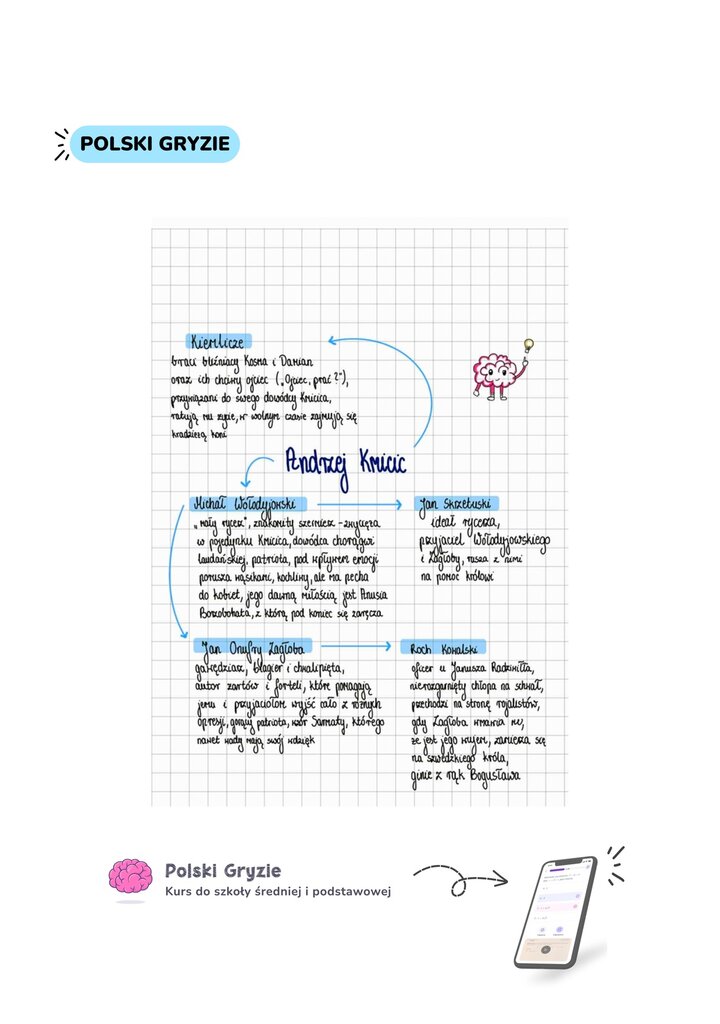 POLSKI GRYZIE
Kiemlicze
bracia bliźniacy Kosma i Damian
oraz ich chciwy ojciec („Ojciec, prać?"),
przywiązani do swego dowódcy Kmicica,
ratują mu życie, w wolnym czasie zajmują się
kradzieżą koni
Andrzej Kmicic
Michał Wołodyjowski
„mały rycerz", znakomity szermierz - zwycięża
w pojedynku Kmicica, dowódca chorągwi
laudańskiej, patriota, pod wpływem emocji
porusza wąsikami, kochliwy, ale ma pecha
do kobiet, jego dawną miłością jest Anusia
Borzobohata, z którą pod koniec się zaręcza
Jan Skrzetuski
ideał rycerza,
przyjaciel Wołodyjowskiego
i Zagłoby, rusza z nimi
na pomoc królowi
Jan Onufry Zagłoba
gawędziarz, blagier i chwalipięta,
autor żartów i forteli, które pomagają
jemu i przyjaciołom wyjść cało z różnych
opresji, gorący patriota, wzór Sarmaty, którego
nawet wady mają swój wdzięk
Roch Kowalski
oficer u Janusza Radziwiłła,
nierozgarnięty chłopa na schwał,
przechodzi na stronę rojalistów,
gdy Zagłoba wmawia mu,
że jest jego wujem, zamierza się
na szwedzkiego króla,
ginie z rąk Bogusława
Polski Gryzie
Kurs do szkoły średniej i podstawowej